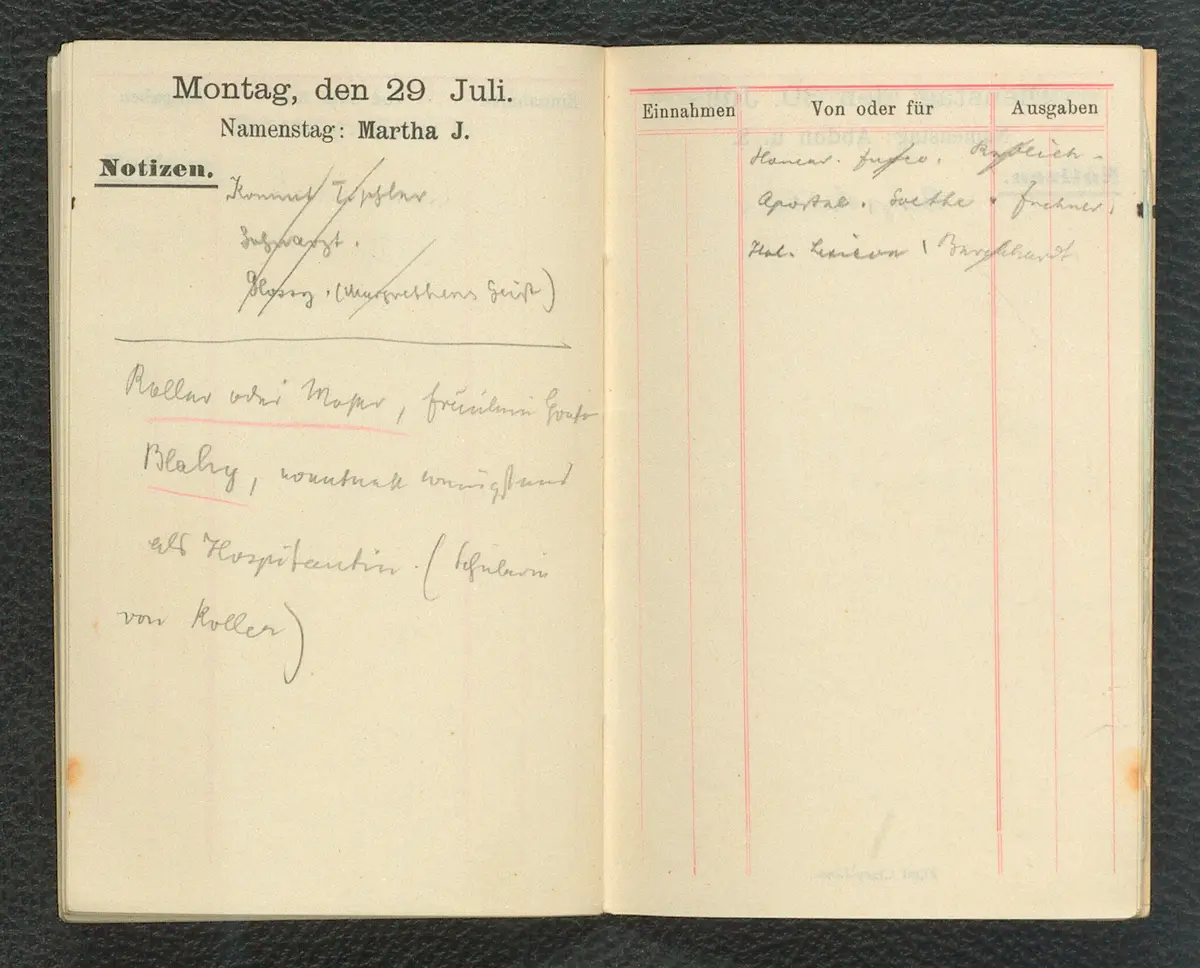 Montag, den 29 Juli.
Namenstag: Martha J.
Notizen.
Kommt Tischler
Zahnarzt.
Glossy. (Margrethens Geist)
Roller oder Moser, Fräulein
Blahy, eventuell wenigstens
als Hospitantin. (Schülerin
von Roller)
Einnahmen Von oder für Ausgaben
Homer.
Apostal. Goethe. Fechner.
Ital. Lexicon Burckhardt